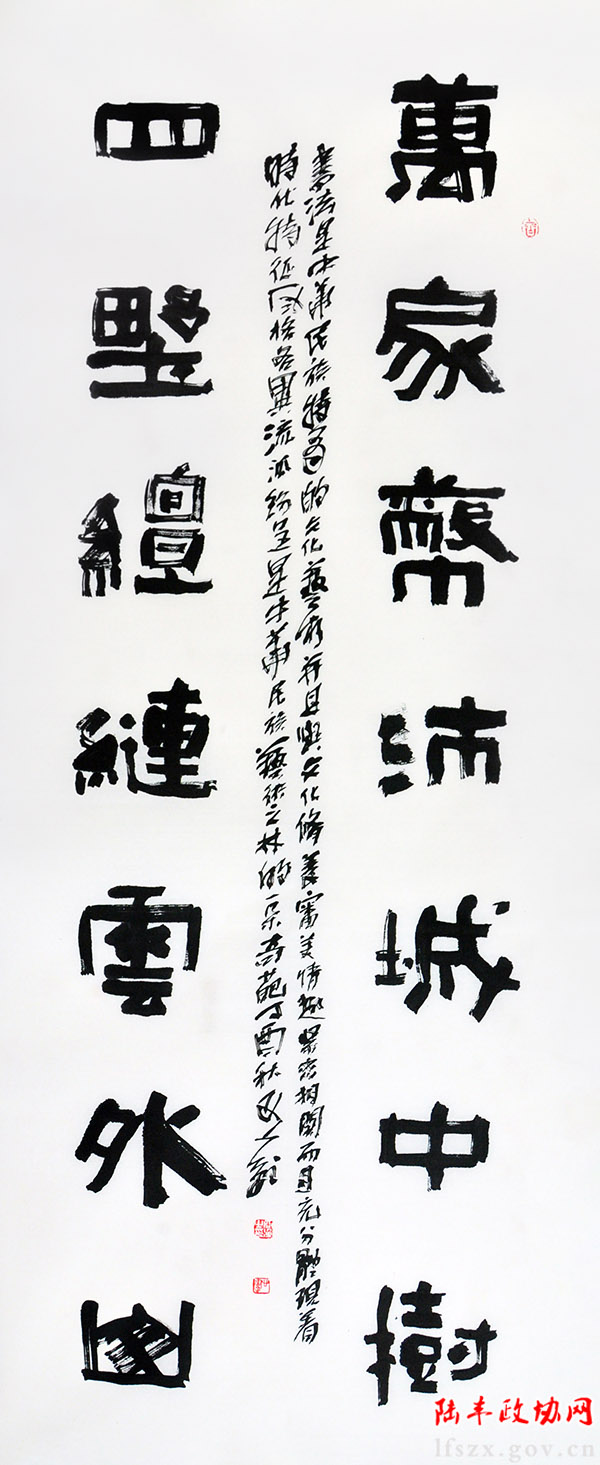 萬家沛城中樹
書法是中華民族特有的文化藝術并且與文化修養審美情趣緊密相關而且充分體現着
時代特征風格各異流派紛呈是中華民族藝術之林的一朵奇葩丁酉秋
四野繵縺雲外
陆丰政协网
lfszx.gov.cn